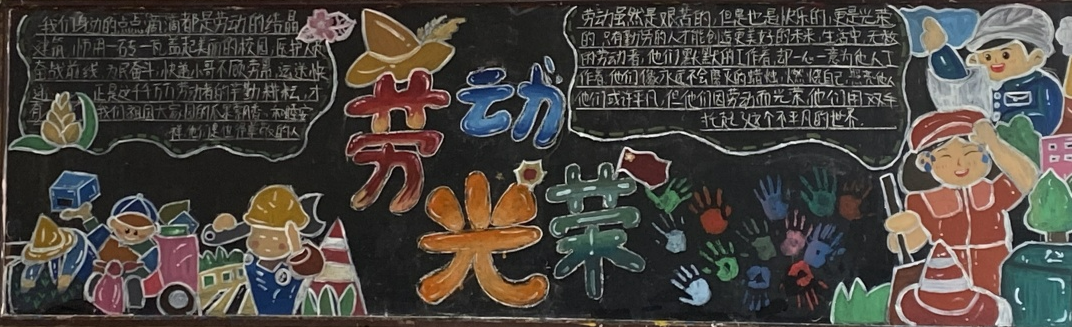 我们身边的点点滴滴都是劳动的结晶
建筑师用一石一瓦盖起美丽的校园,医护人员
奋战前线,为民奋斗,快递小哥不顾劳累,运送快
正是这千千万万劳动者的辛勤耕耘,才
有 我们祖国大
他们是世界最美的人
劳动
光荣
劳动虽然是艰苦的,但是也是快乐的,更是光荣
的,只有勤劳的人才能创造更美好的未来,生活中,无数
的劳动者,他们默默的工作着,却一心一意为他人工
作着,他们像永远不会熄灭的蜡烛,燃烧自己,照亮他人
他们或许平凡,但他们因劳动而光荣,他们用双手
托起这个不平凡的世界.